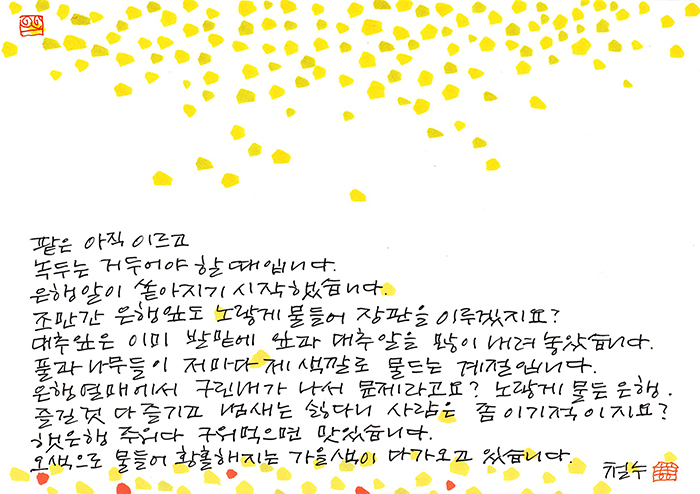 팥은 아직 이르고
녹두는 거두어야 할 때입니다.
은행알이 쏟아지기 시작했습니다.
조만간 은행잎도 노랗게 물들어 장판을 이루겠지요?
대추잎은 이미 발밑에 잎과 대추알을 많이 내려 놓았습니다.
풀과 나무들이 저마다 제 색깔로 물드는 계절입니다.
은행열매에서 구린내가 나서 문제라고요? 노랗게 물든 은행.
즐길것 다 즐기고 냄새는 싫다니 사람은 좀 이기적이지요?
햇은행 주워다 구워먹으면 맛있습니다.
오색으로 물들어 황홀해지는 가을색이 다가오고 있습니다.
철수